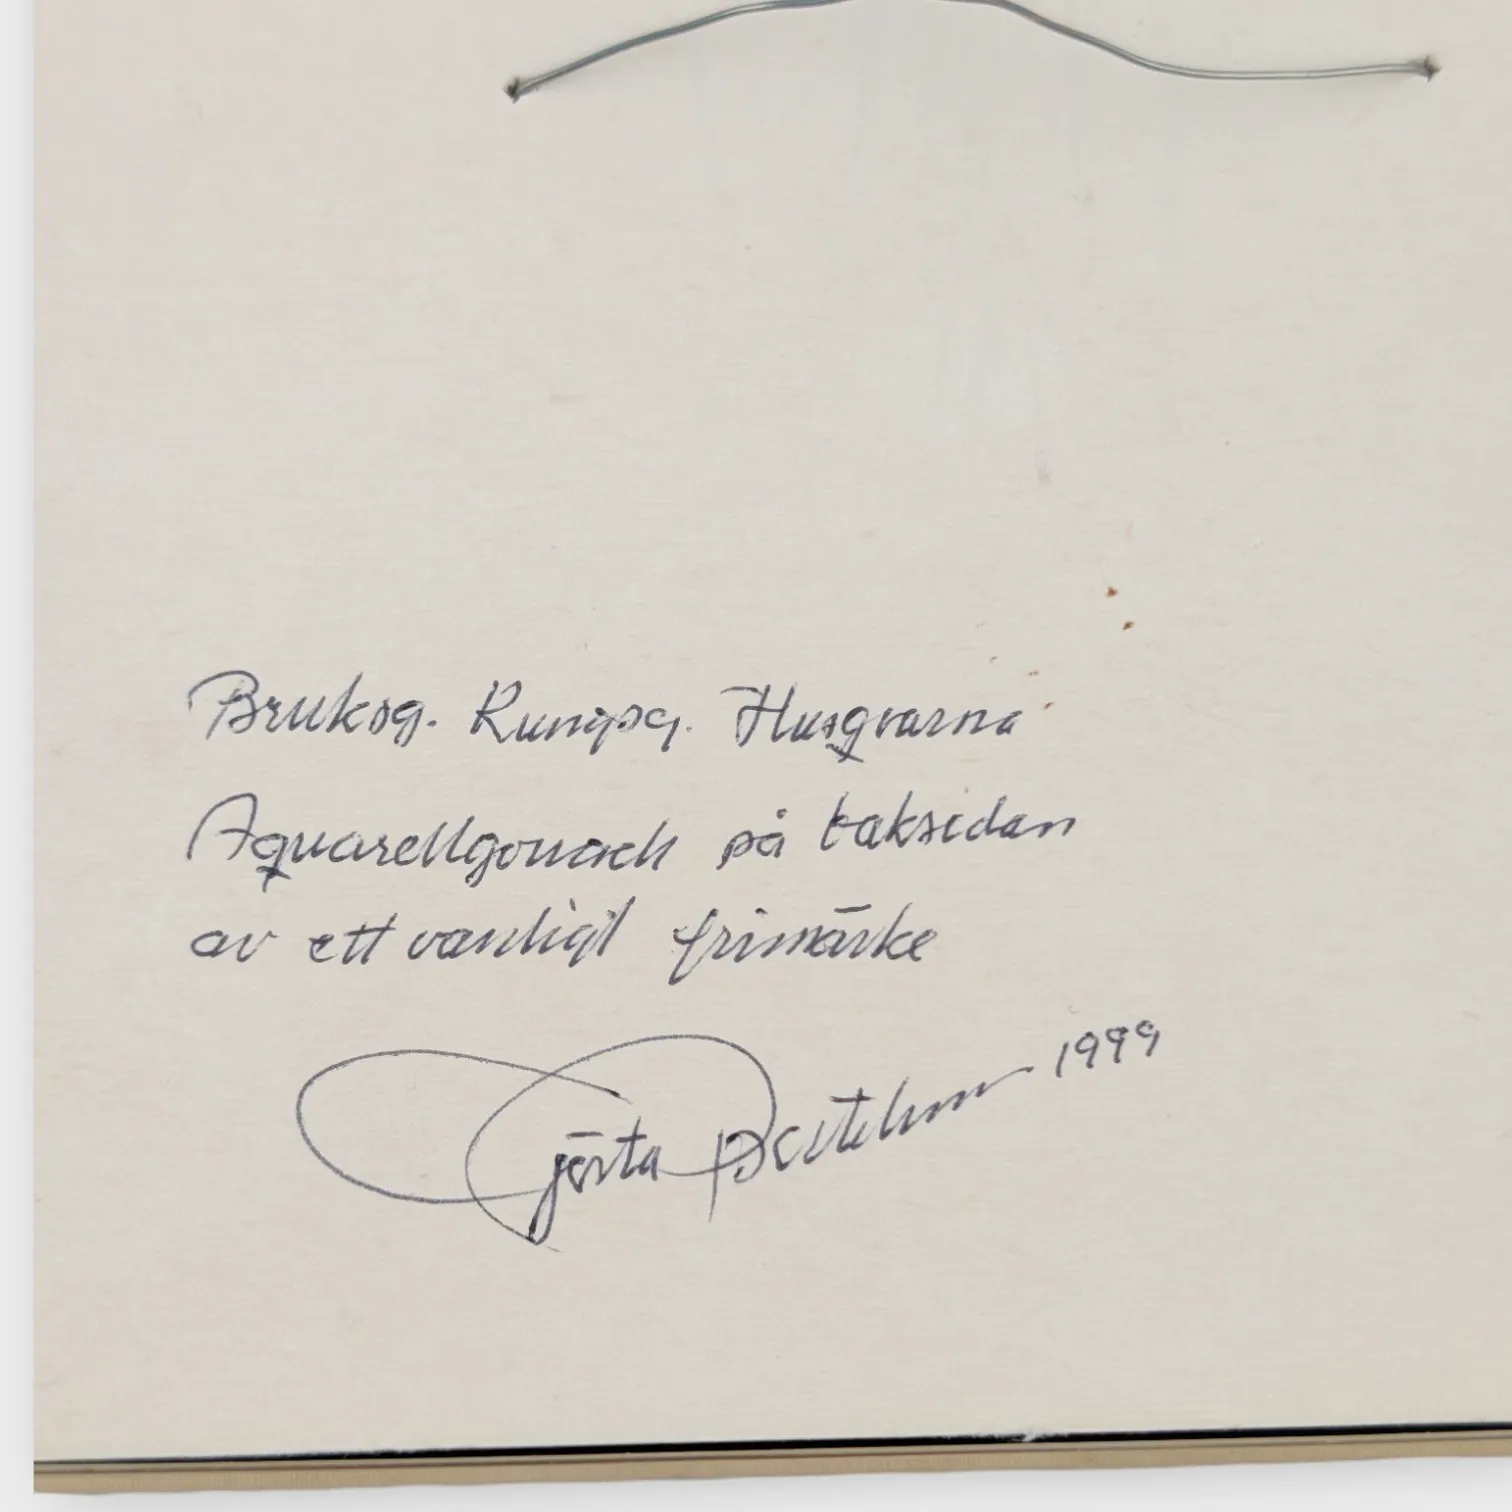 Bruksg. Kungsg. Husqvarna
Aquarellgouach på baksidan
av ett vanligt frimärke
Gösta 1999